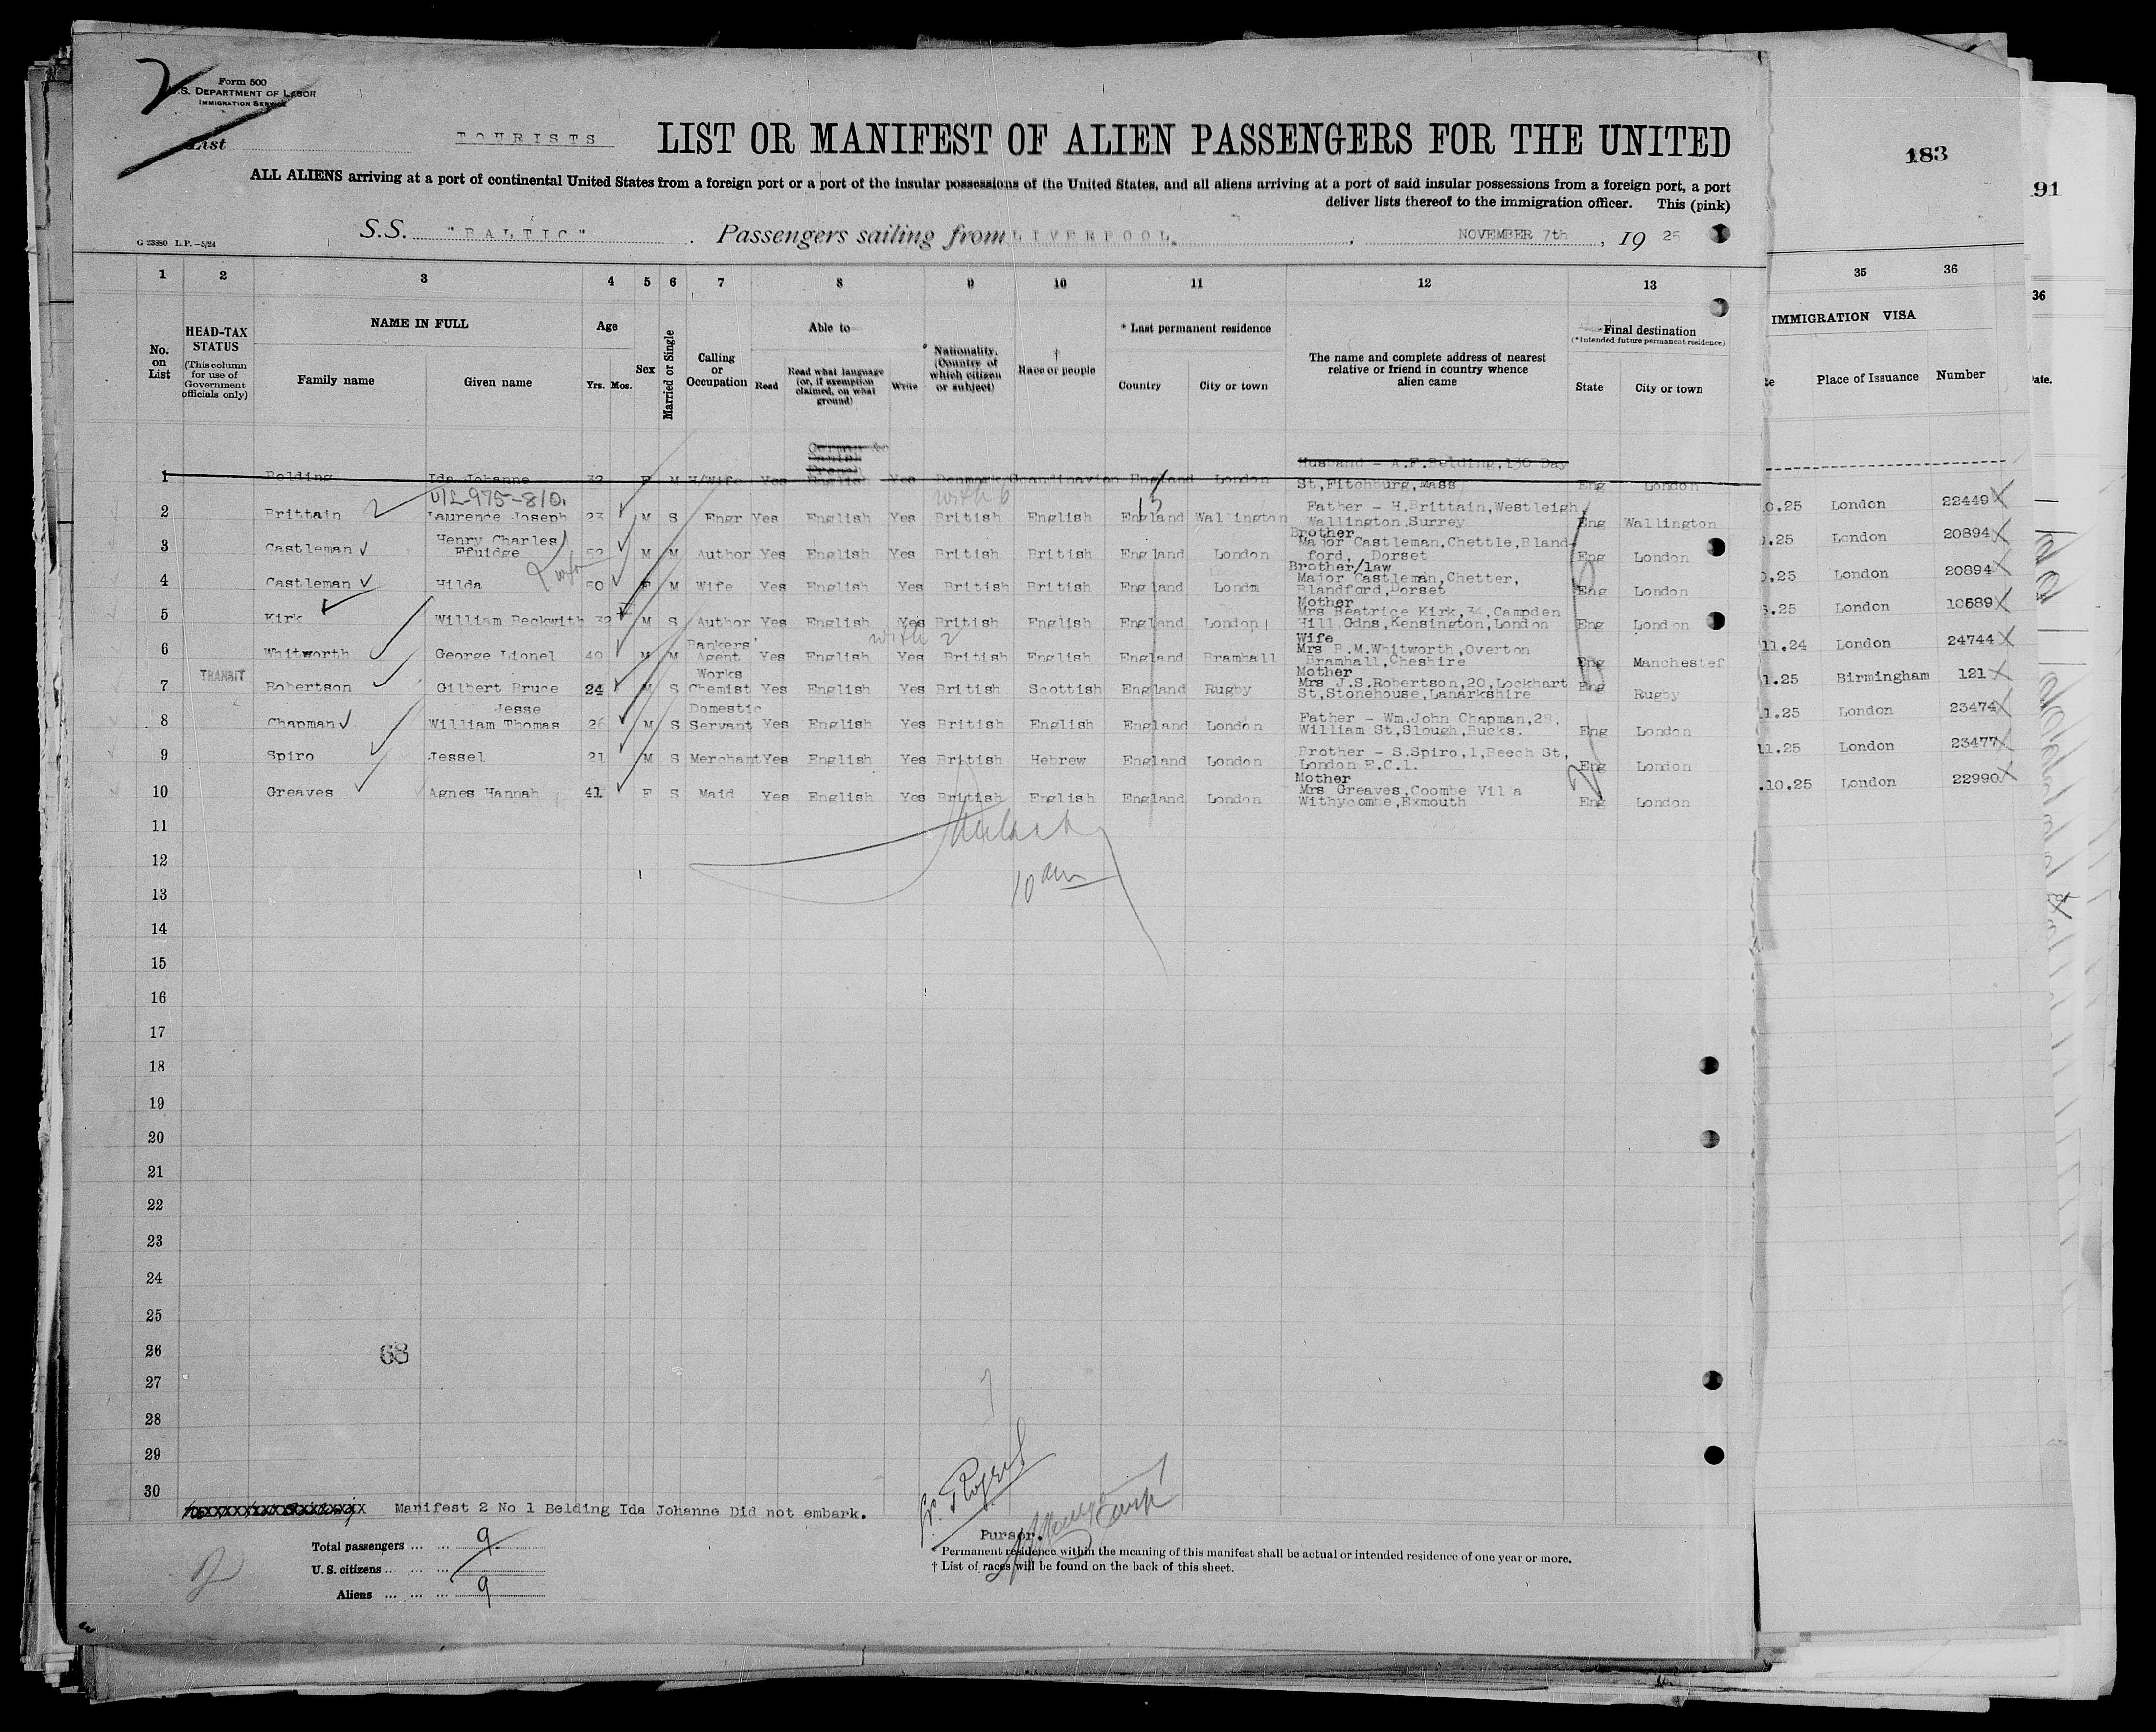 Form 500
U.S. DEPARTMENT OF LABOR
IMMIGRATION SERVICE
List
TOURISTS LIST OR MANIFEST OF ALIEN PASSENGERS FOR THE UNITED
183
91
ALL ALIENS arriving at a port of continental United States from a foreign port or a port of the insular possessions of the United States, and all aliens arriving at a port of said insular possessions from a foreign port, a port
deliver lists thereof to the immigration officer. This (pink)
G 23880 L.P.—5/24
S.S. "BALTIC" Passengers sailing from LIVERPOOL, NOVEMBER 7th, 19 25
1 2 3 4 5 6 7 8 9 10 11 12 13 35 36
No. on List
HEAD-TAX STATUS
(This column for use of Government officials only)
NAME IN FULL
Family name Given name
Age
Yrs. Mos.
Sex
Married or Single
Calling or Occupation
Able to
Read
Read what language (or, if exemption claimed, on what ground)
Write
Nationality. (Country of which citizen or subject)
† Race or people
* Last permanent residence
Country City or town
The name and complete address of nearest relative or friend in country whence alien came
Final destination
(*Intended future permanent residence)
State City or town
IMMIGRATION VISA
Place of Issuance Number
36
Date.
Husband - A.F.Belding,130 Day
1 Belding Ida Johanne 32 F M H/Wife Yes English Yes Denmark Scandinavian England London St,Fitchburg,Mass Eng London
V/L-975-810.
with 6
2 Brittain Laurence Joseph 23 M S Engr Yes English Yes British English England Wallington Father - H.Brittain,Westleigh, Wallington.Surrey Eng Wallington 0.25 London 22449
3 Castleman Henry Charles Ffuidge 52 M M Author Yes English Yes British British England London Brother Major Castleman,Chettle,Blandford, Dorset Eng London .25 London 20894
4 Castleman Hilda 50 F M Wife Yes English Yes British British England Londm Brother/law Major Castleman,Chetter, Blandford,Dorset Eng London 0.25 London 20894
5 Kirk William Beckwith 32 M S Author Yes English Yes British English England London Mother Mrs Beatrice Kirk,34,Campden Hill Gdns,Kensington,London Eng London .25 London 10689
with 2
6 Whitworth George Lionel 40 M M Bankers' Agent Yes English Yes British English England Bramhall Wife Mrs B.M.Whitworth,Overton Bramhall,Cheshire Eng Manchester 11.24 London 24744
TRANSIT
7 Robertson Gilbert Bruce 24 M S Works Chemist Yes English Yes British Scottish England Rugby Mother Mrs J.S.Robertson,20,Lockhart St,Stonehouse,Lanarkshire Eng Rugby 1.25 Birmingham 121
8 Chapman Jesse William Thomas 26 M S Domestic Servant Yes English Yes British English England London Father - Wm.John Chapman,28, William St,Slough,Bucks. Eng London 1.25 London 23474
9 Spiro Jessel 21 M S Merchant Yes English Yes British Hebrew England London Brother - S.Spiro,1,Beech St, London E.C.1. Eng London 11.25 London 23477
10 Greaves Agnes Hannah 41 F S Maid Yes English Yes British English England London Mother Mrs Greaves,Coombe Villa Withycombe,Exmouth Eng London .10.25 London 22990
11
12
10 am
13
14
15
16
17
18
19
20
21
22
23
24
25
26
68
27
28
29
30
Manifest 2 No 1 Belding Ida Johanne Did not embark.
Purser.
Total passengers ... ... 9
U. S. citizens ... ...
Aliens ... ... ... 9
* Permanent residence within the meaning of this manifest shall be actual or intended residence of one year or more.
† List of races will be found on the back of this sheet.